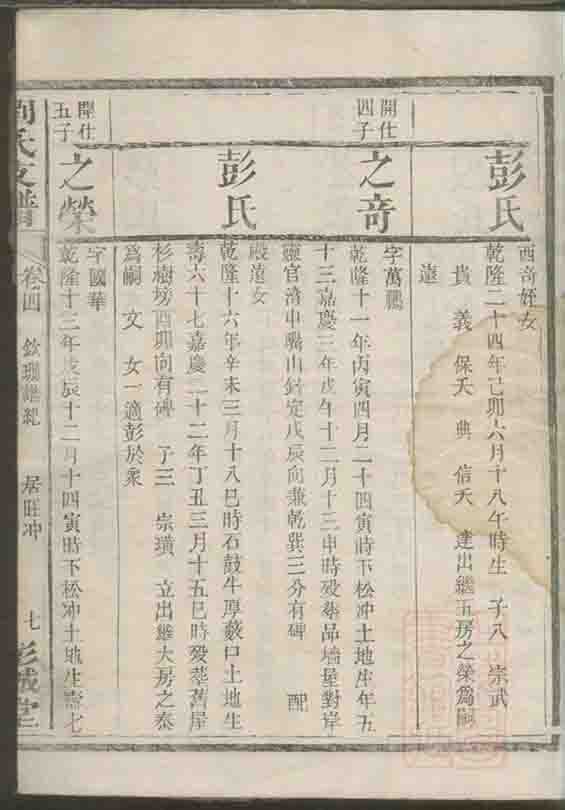 彭氏
酉奇姪女
乾隆二十四年己卯六月十八午時生 子八 宗武
貴 義 保夭 典 信夭 達出繼五房之榮爲嗣
遠
開仕
四子
之奇
字萬鵬
乾隆十一年丙寅四月二十四寅時下松冲土地生年五
十三嘉慶三年戊午十二月十三申時歿葬品墻屋對岸
靈官湾申 山針定戊辰向兼乾巽三分有碑 配
彭氏
殿遠女
乾隆十六年辛未三月十八巳時石鼓牛厚藪口土地生
壽六十七嘉慶二十二年丁丑三月十五巳時歿葬舊屋
杉樹坊酉卯向有碑 子三 宗璜 立出繼大房之泰
爲嗣 文 女一適彭於衆
開仕
五子
之榮
字國華
乾隆十三年戊辰十二月十四寅時下松冲土地生壽七
氏支譜
卷四 欽 紀 居旺冲
七 彭城堂